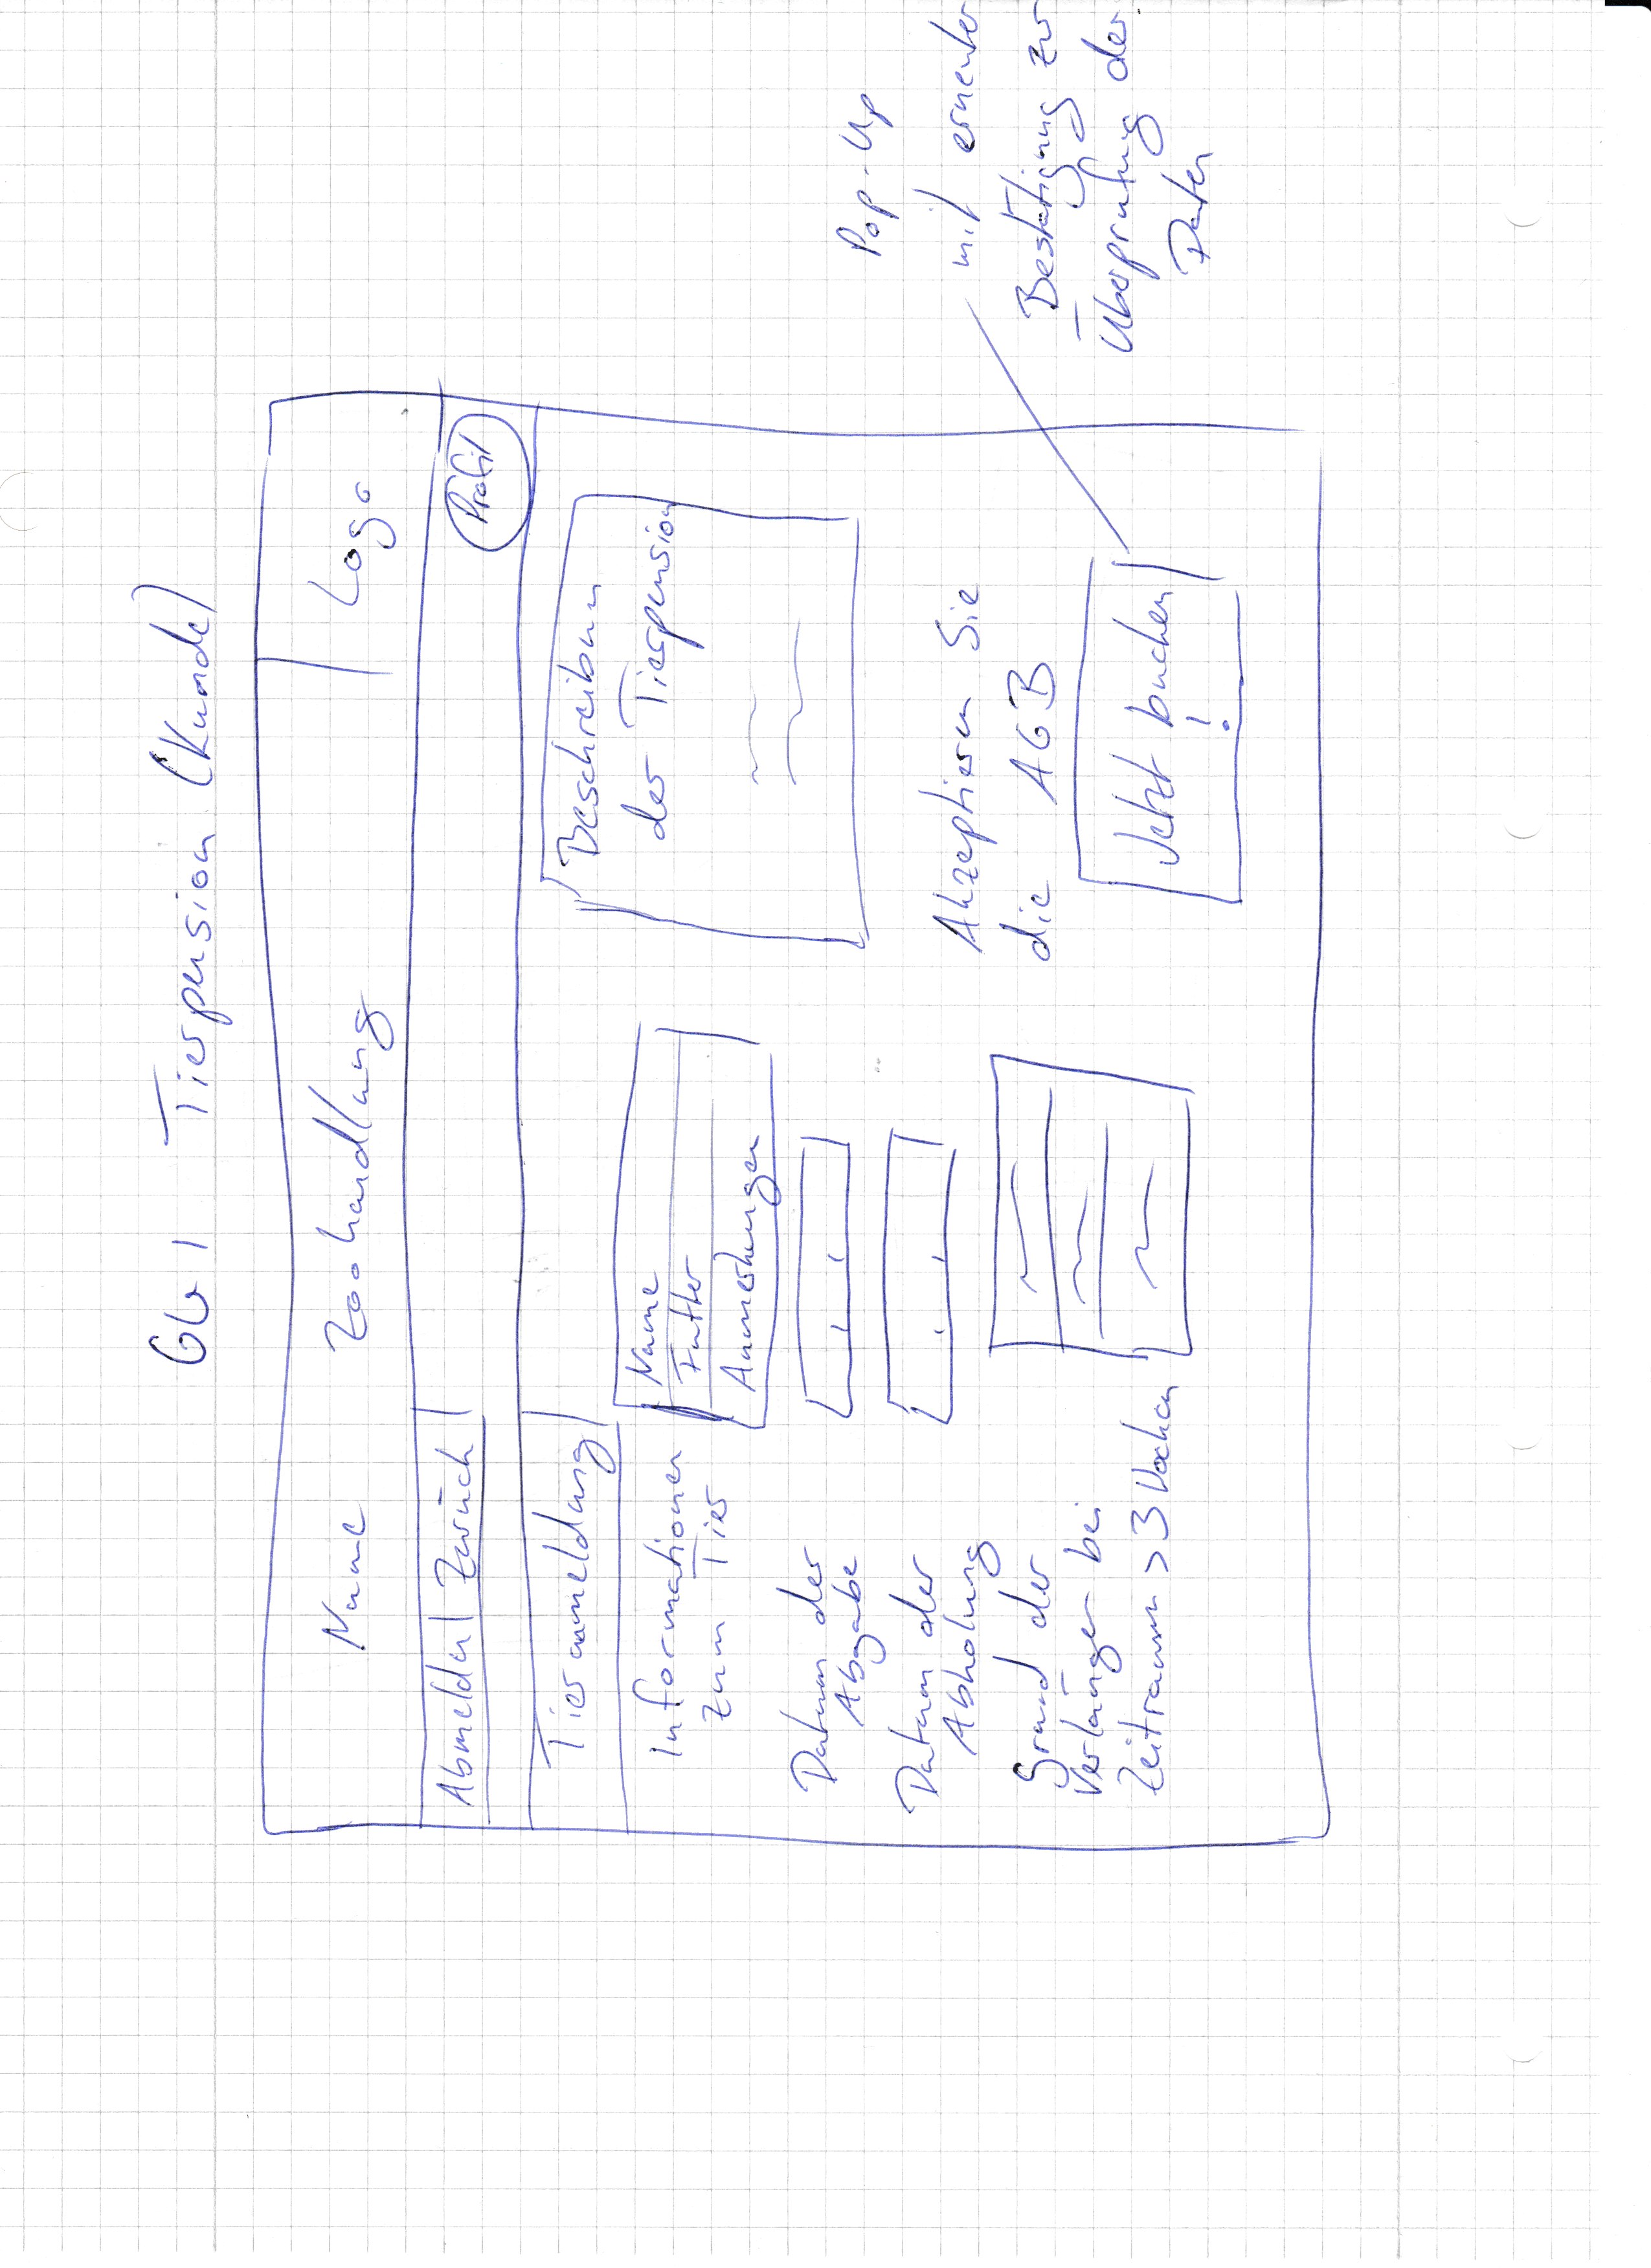 GUI Tierpension (Kunde)
Name Zoohandlung Logo
Abmelden Zurück Profil
Tieranmeldung
Informationen
zum Tier
Name
Futter
Anmerkungen
Beschreibung
der Tierpension
Datum der
Abgabe
Datum der
Abholung
Grund der
Verlänger bei
Zeitraum > 3 Wochen
Akzeptieren Sie
die AGB
Jetzt buchen
!
Pop-Up
mit erneuter
Bestätigung zur
Überprüfung der
Daten